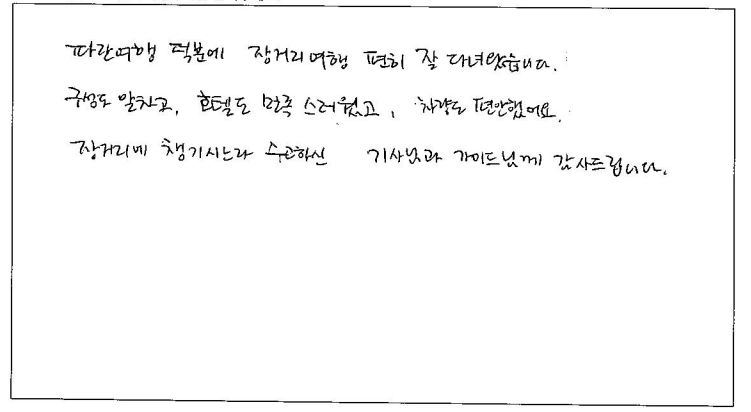 파란여행 덕분에 장거리여행 편히 잘 다녀왔습니다.
구성도 알차고, 호텔도 만족스러웠고, 차량도 편안했어요.
장거리에 챙기시느라 수고하신 기사님과 가이드님께 감사드립니다.